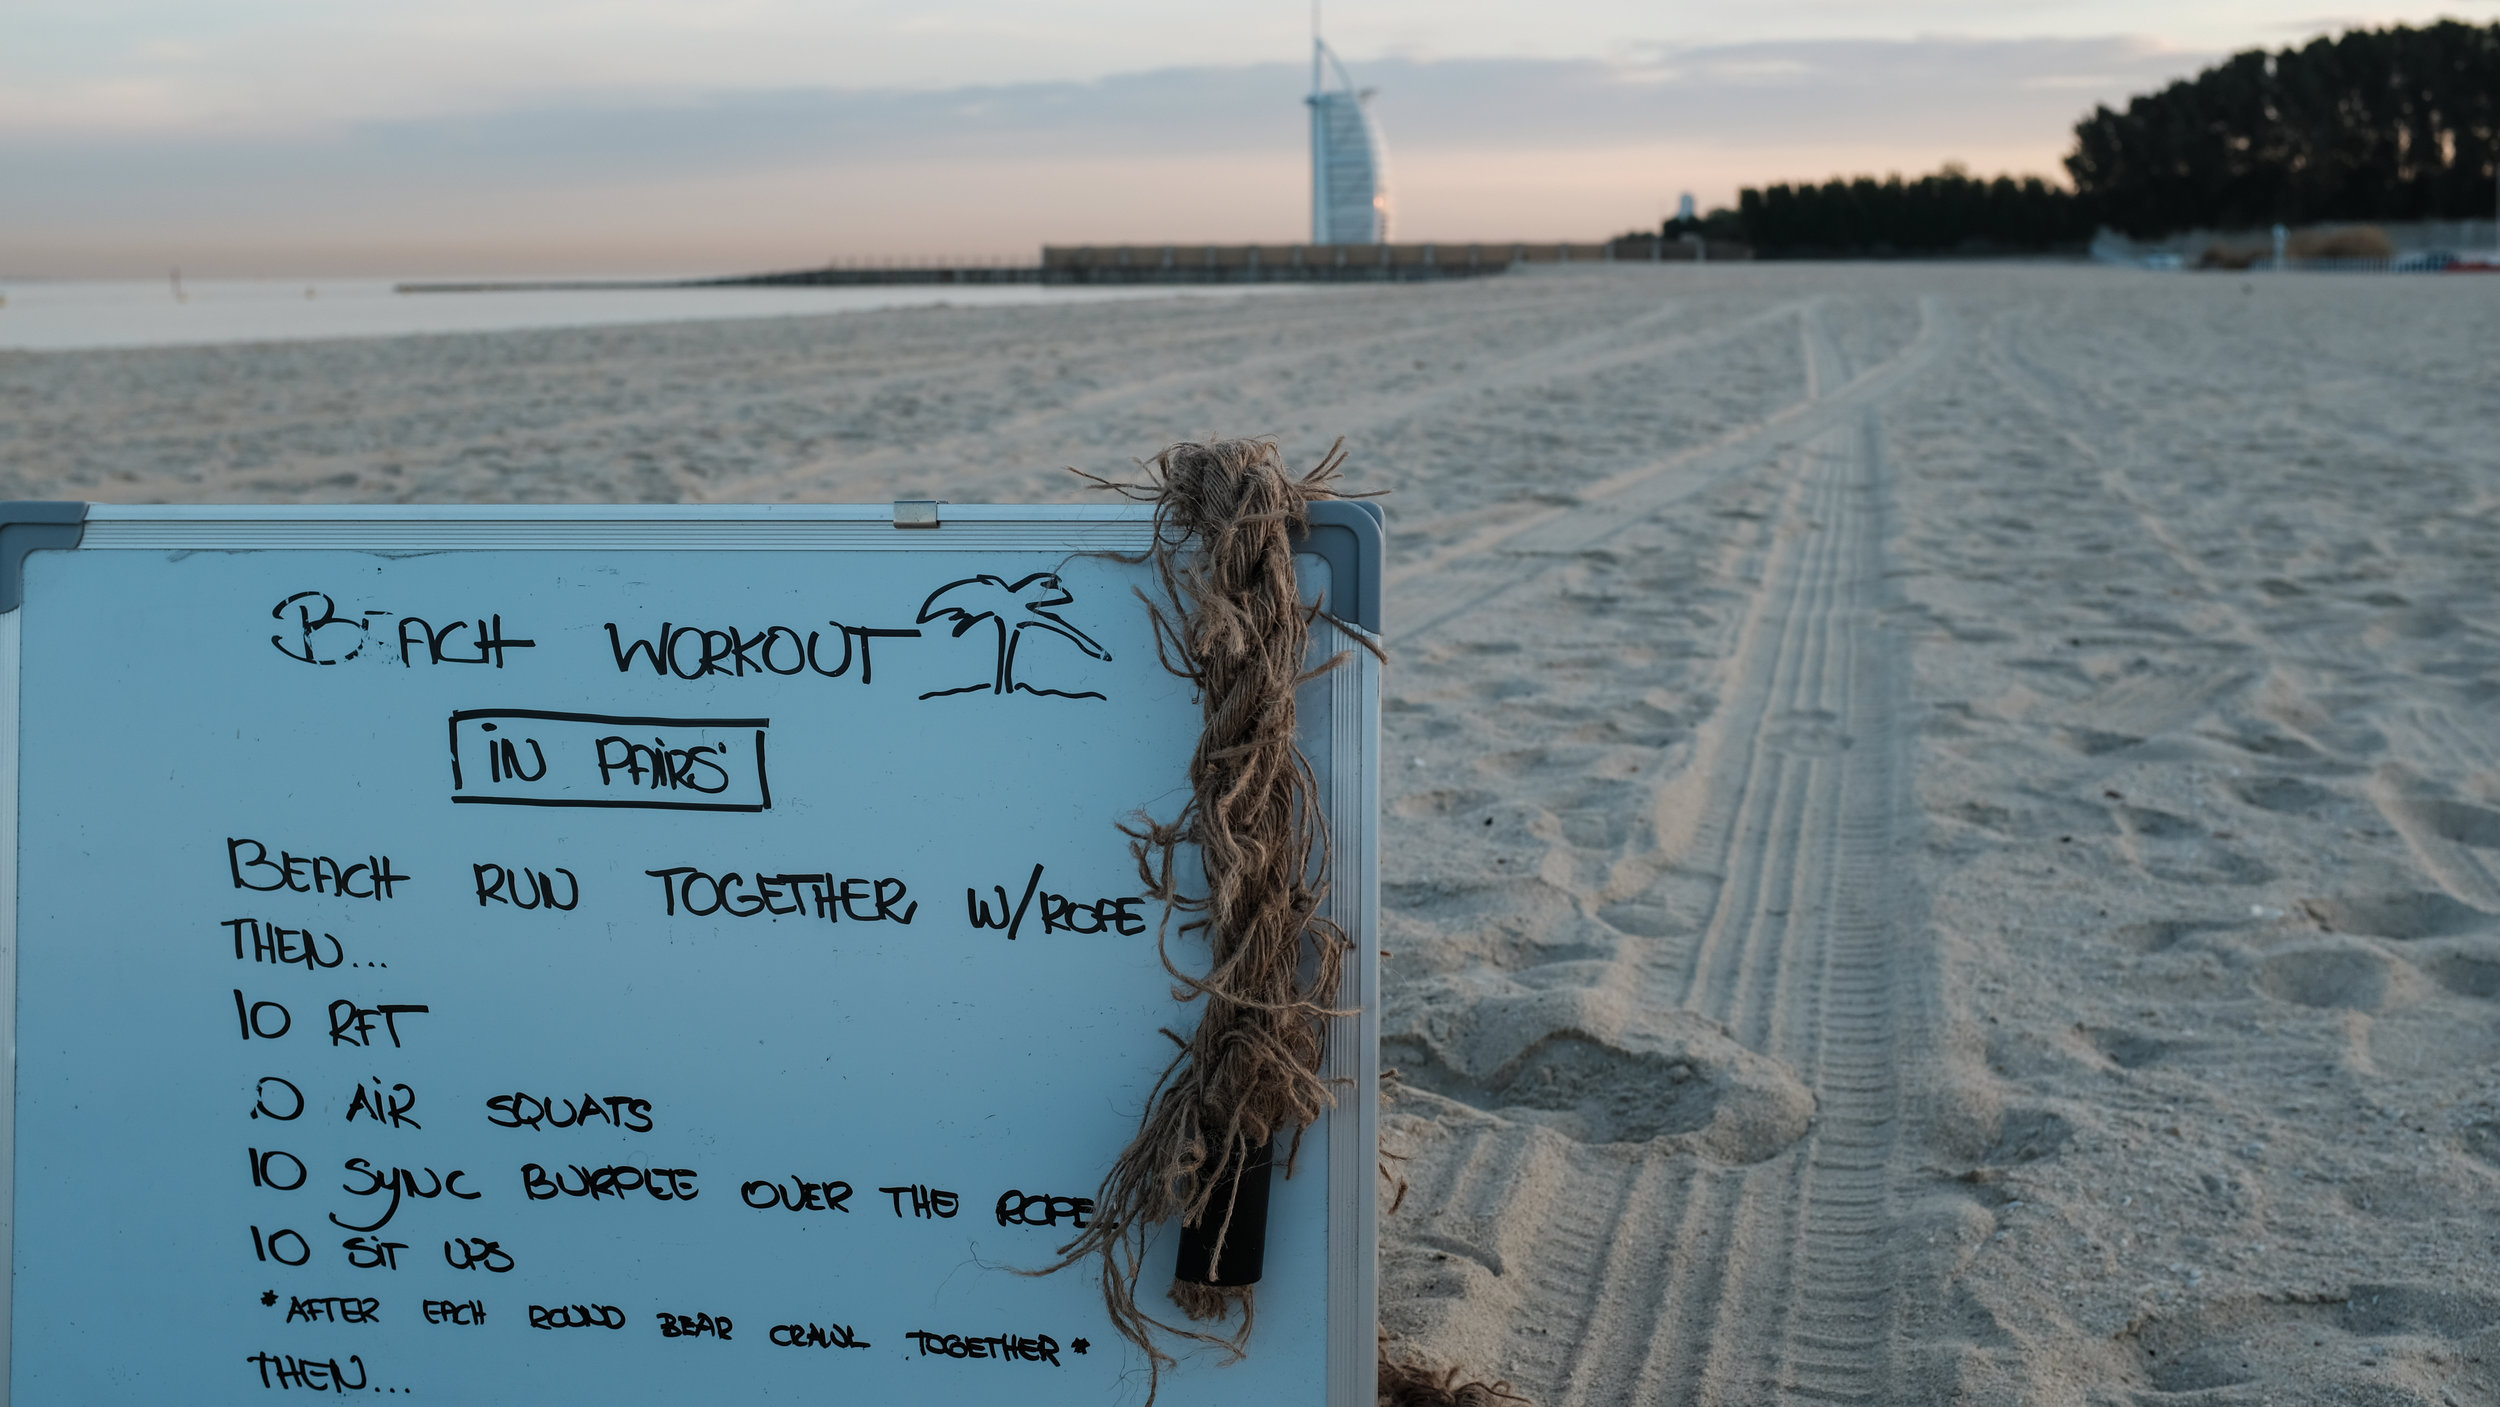 BEACH WORKOUT
IN PAIRS
BEACH RUN TOGETHER W/ROPE
THEN...
10 RFT
0 AIR SQUATS
10 SYNC BURPEE OVER THE ROPE
10 SIT UPS
*AFTER EACH ROUND BEAR CRAWL TOGETHER*
THEN...